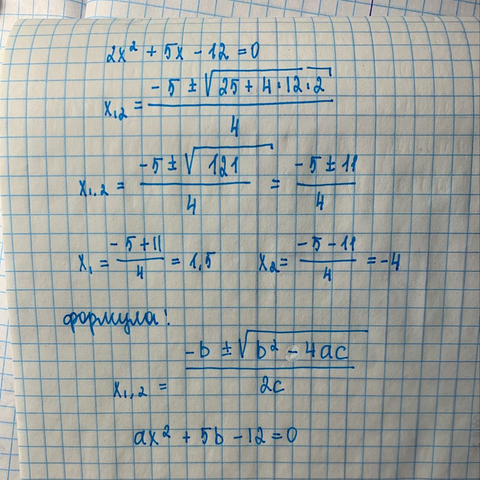 2x² + 5x - 12 = 0
x₁,₂ = (-5 ± √(25 + 4·12·2))/4
x₁,₂ = (-5 ± √121)/4 = (-5 ± 11)/4
x₁ = (-5 + 11)/4 = 1,5 x₂ = (-5 - 11)/4 = -4
формула!
x₁,₂ = (-b ± √(b² - 4ac))/2c
ax² + 5b - 12 = 0